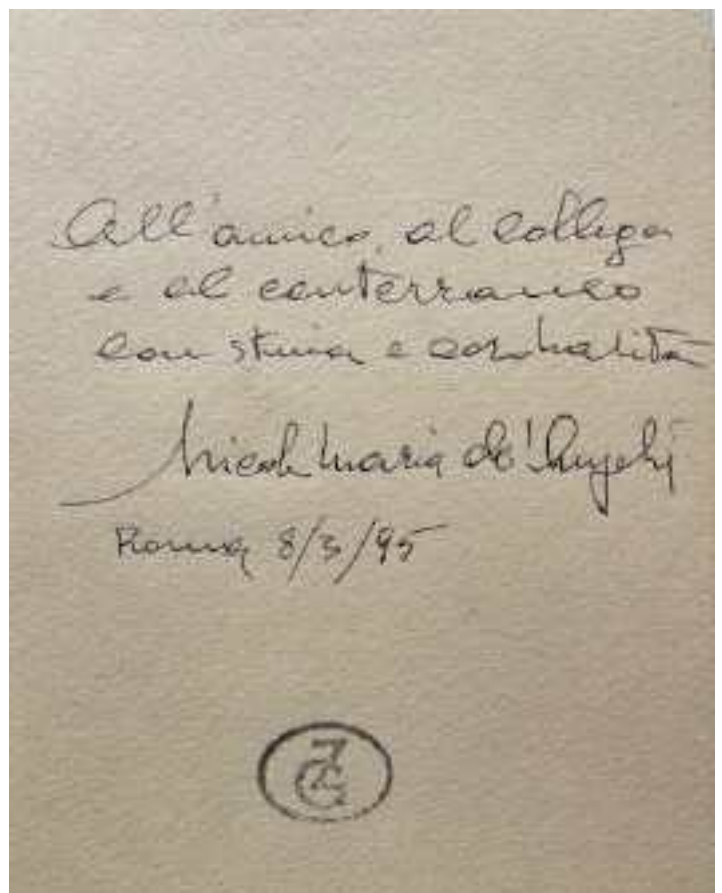 All'amico, al collega
e al conterraneo
con stima e cordialità
Nicola Maria de' Angeli
Roma 8/3/95